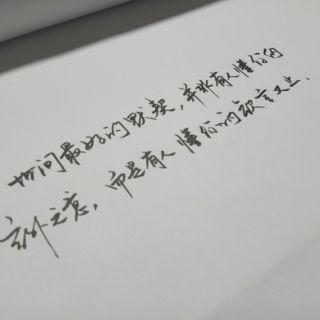 世间最好的默契,并非有人懂你的
言外之意,而是有人懂你的欲言又止.